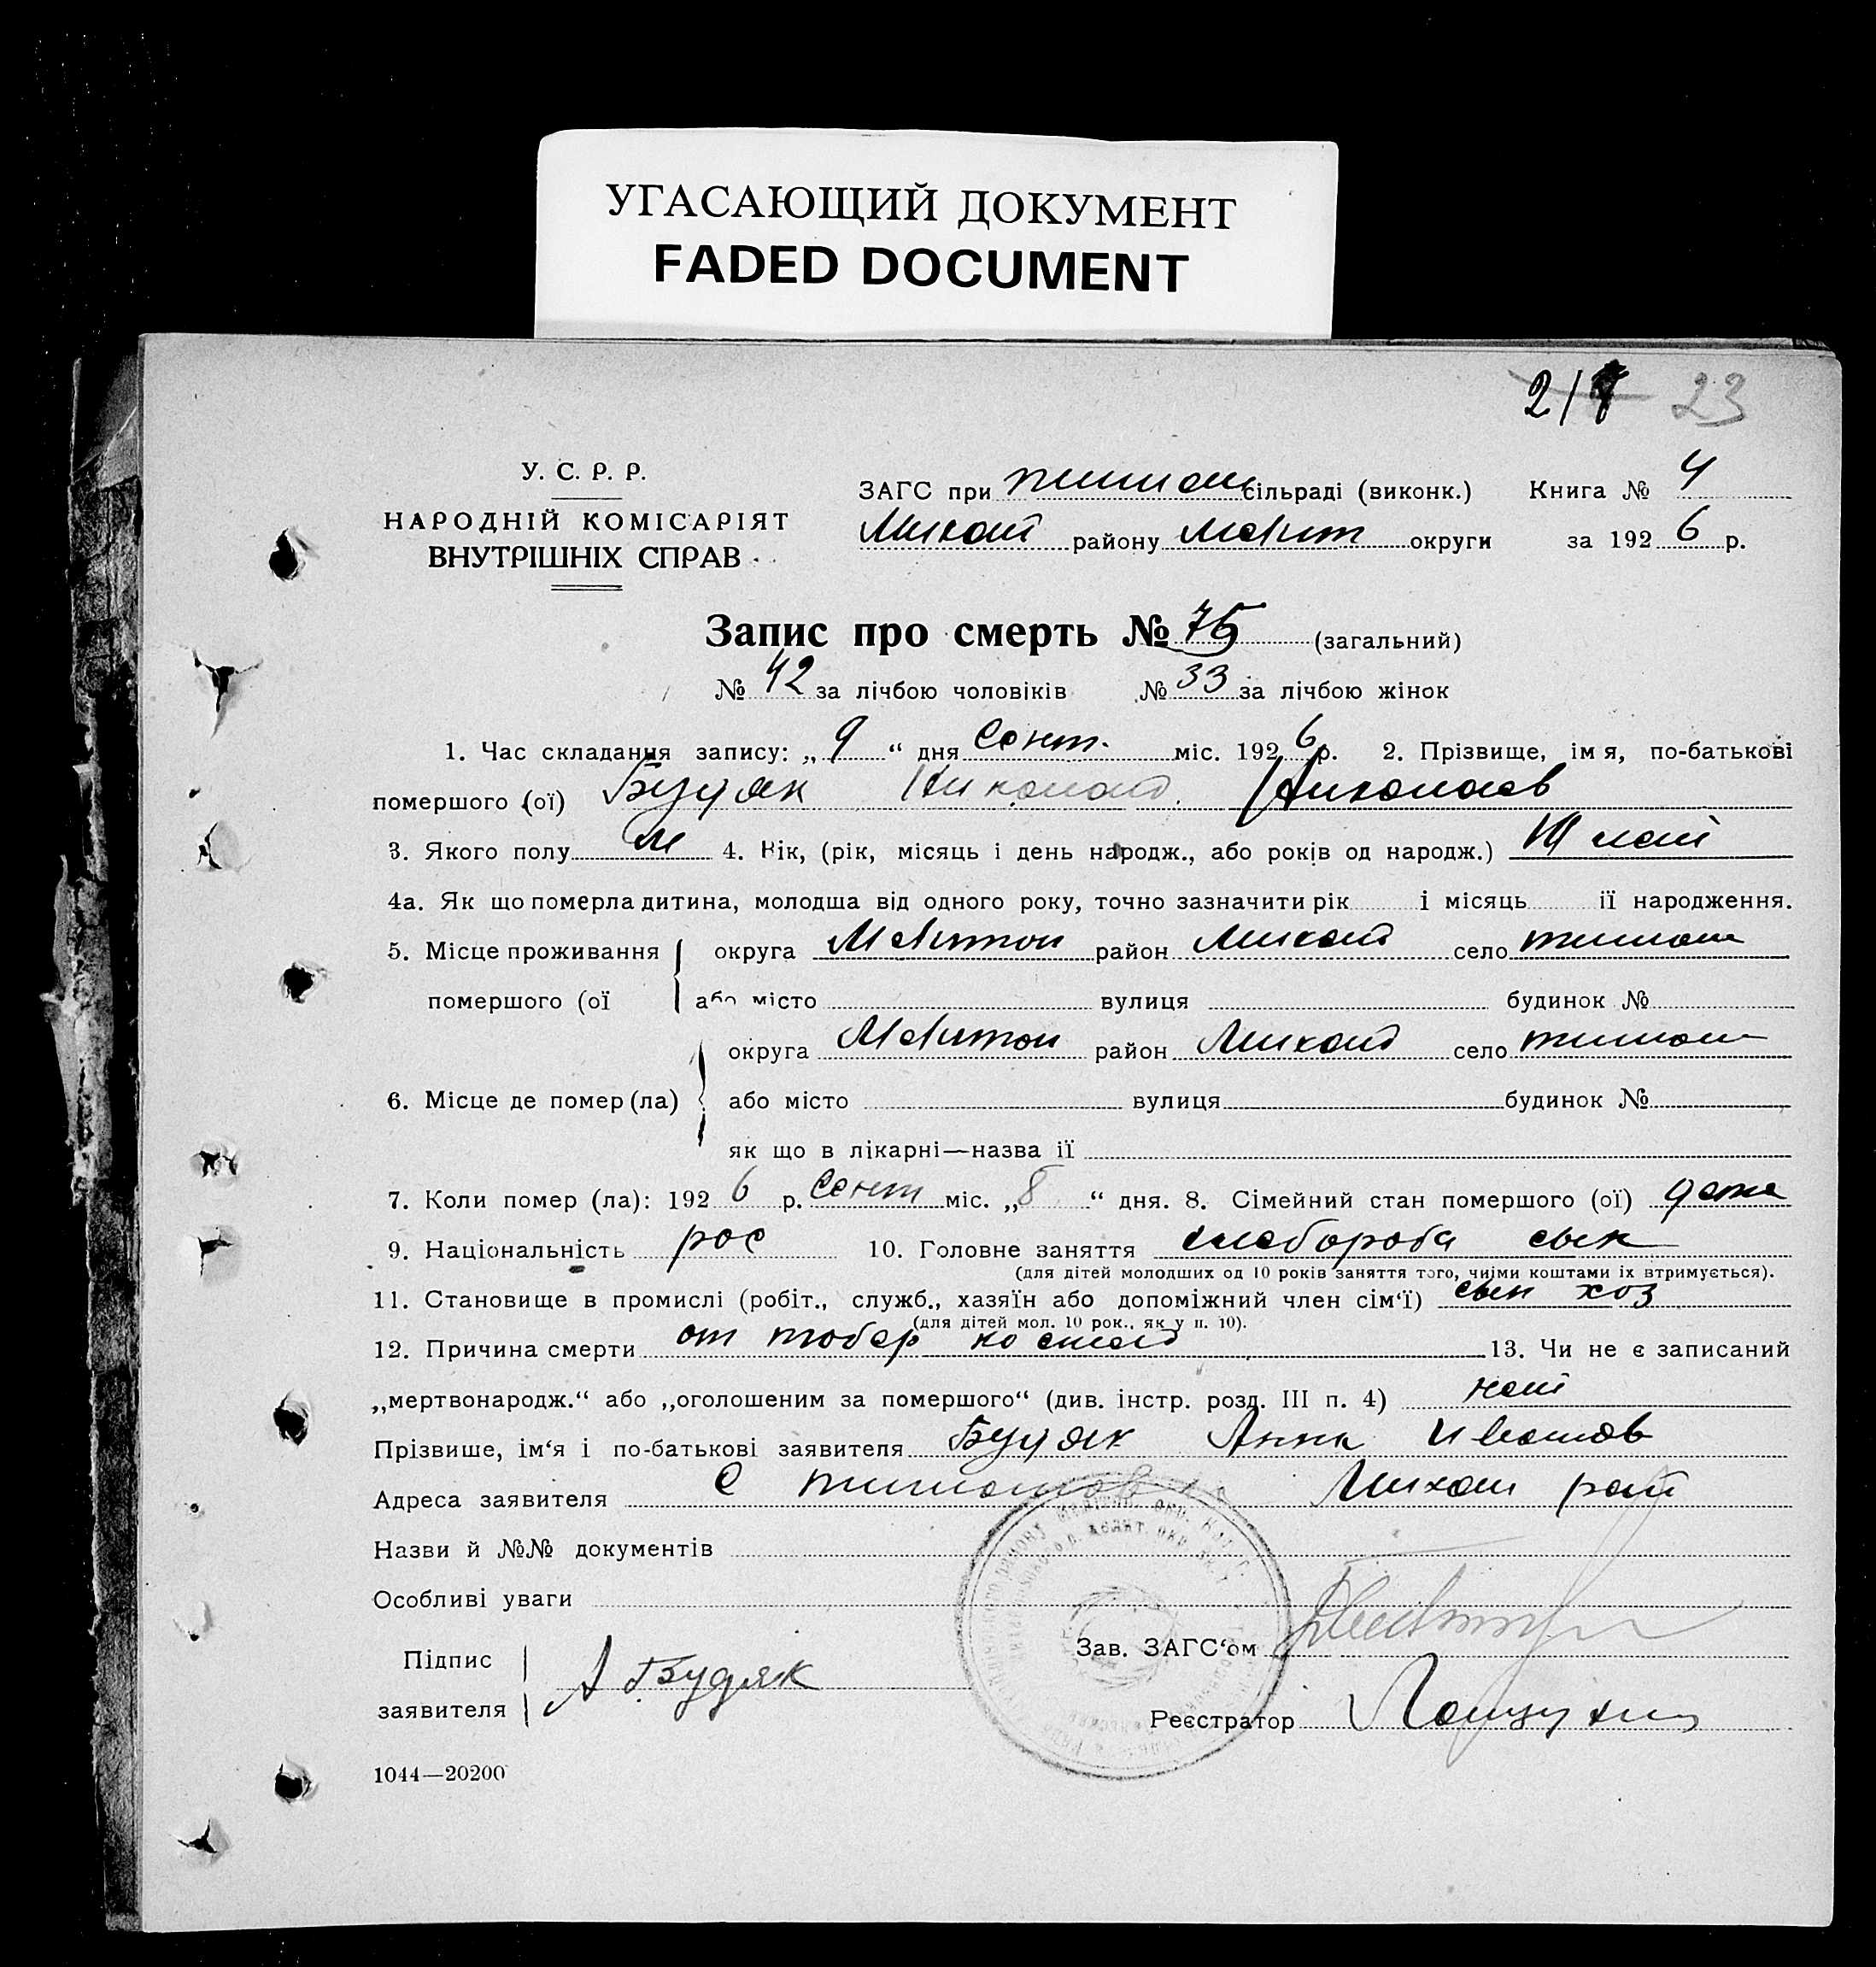 УГАСАЮЩИЙ ДОКУМЕНТ
FADED DOCUMENT
23
У. С. Р. Р.
НАРОДНІЙ КОМІСАРІЯТ
ВНУТРІШНІХ СПРАВ
ЗАГС при тимош сільраді (виконк.) Книга № 4
Михай району Мелит округи за 1926 р.
Запис про смерть № 75 (загальний)
№ 42 за лічбою чоловіків № 33 за лічбою жінок
1. Час складання запису: „ 9 “ дня Сент. міс. 1926 р. 2. Прізвище, імя, по-батькові
помершого (ої) Будяк Николай Николаев
3. Якого полу м 4. Вік, (рік, місяць і день народж., або років од народж.) лет
4а. Як що померла дитина, молодша від одного року, точно зазначити рік і місяць її народження.
5. Місце проживання округа Мелитоп район Михай село тимош
помершого (ої або місто вулиця будинок №
округа Мелитоп район Михай село тимош
6. Місце де помер (ла) або місто вулиця будинок №
як що в лікарні—назва її
7. Коли помер (ла): 1926 р. Сент міс. „ 8 “ дня. 8. Сімейний стан помершого (ої) дитя
9. Національність рос 10. Головне заняття хлебороба сын
(для дітей молодших од 10 років заняття того, чиїми коштами їх втримується).
11. Становище в промислі (робіт., служб., хазяїн або допоміжний член сім‘ї) сын хоз
(для дітей мол. 10 рок., як у п. 10).
12. Причина смерти от тобер костей 13. Чи не є записаний
„мертвонародж.“ або „оголошеним за помершого“ (див. інстр. розд. III п. 4) нет
Прізвише, ім‘я і по-батькові заявителя Будяк Анна Иванов
Адреса заявителя С Михай рай
Назви й №№ документів
Особливі уваги
Підпис
заявителя А Будяк
Зав. ЗАГС‘ом
Реєстратор
1044—20200